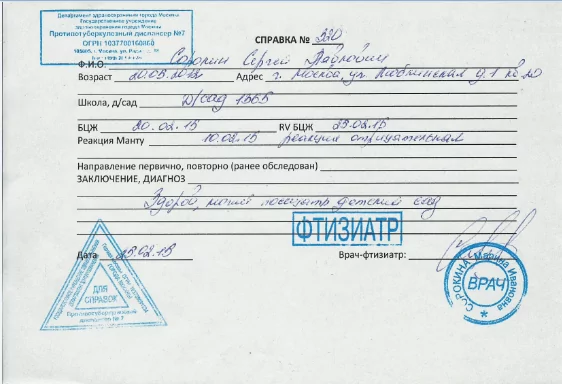 Департамент здравоохранения города Москвы
Государственное учреждение
Противотуберкулезный диспансер №7
ОГРН 1037700160860
СПРАВКА № 320
Ф.И.О. Сорокин Сергей Павлович
Возраст 20.03.2012 Адрес г. Москва, ул. Люблинская д.1
Школа, д/сад д/сад 1365
БЦЖ 20.02.15 RV БЦЖ 23.02.15
Реакция Манту 10.02.15 реакция отрицательная
Направление первично, повторно (ранее обследован)
ЗАКЛЮЧЕНИЕ, ДИАГНОЗ
Здоров, может посещать детский сад
ФТИЗИАТР
Дата 25.02.15 Врач-фтизиатр:
ДЛЯ СПРАВОК
Противотуберкулезный диспансер №7
СОРОКИНА Марина Ивановна
ВРАЧ